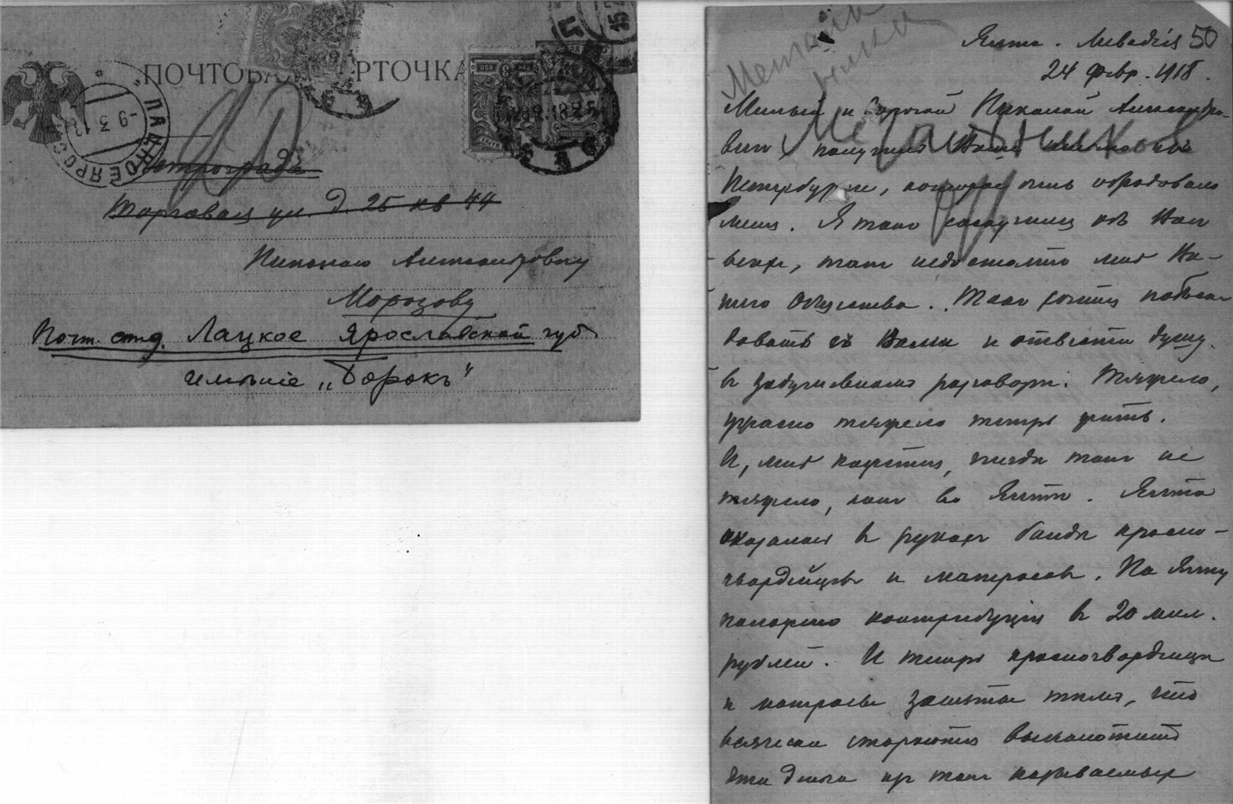 ПОЧТОВАЯ КАРТОЧКА
Петроградъ
Торговая ул. д. 25 кв 44
Николаю Александровичу
Морозову
Почт. отд. Лацкое Ярославской губ.
имѣніе „Борокъ"
50
Ялта. Ливадія
24 февр. 1918.
Мешанинка
Мешанников
Милый и дорогой Николай Александро-
вич, получил Ваше из
Петербурга, которое очень обрадовало
меня. Я так соскучился об Вас
всех, так недостает мне Ва-
шего общества. Так хочется побесе-
довать съ Вами и отвести душу
в задушевном разговоре. Тяжело,
ужасно тяжело теперь жить.
И, мне кажется, нигде так не
тяжело, как в Ялте. Ялта
оказалась в руках банды красно-
гвардейцев и матросов. На Ялту
наложена контрибуция в 20 мил.
рублей. И теперь красногвардейцы
и матросы заняты тем, что
всячески стараются выколотить
эти деньги из так называемых